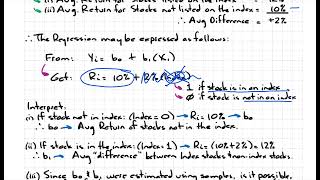 (i) Avg. Return for Stocks listed on the index = 12%
(ii) Avg. Return for Stocks not listed on the index = 10%
∴ Avg Difference = +2%
∴ The Regression may be expressed as follows:
From: Yi = b0 + b1(Xi)
Get: Ri = 10% + 2%
1 if stock is in an index
0 if stock is not in an index
Interpret:
(i) If stock not in index: (Index = 0) → Ri = 10% → b0
∴ b0 → Avg Return of stocks not in the index.
(ii) If stock is in the index: (Index = 1) → Ri = (10% + 2%) = 12%
∴ b1 → Avg "difference" between Index stocks & non-index stocks.
(iii) Since b0 & b1 were estimated using samples, is it possible,